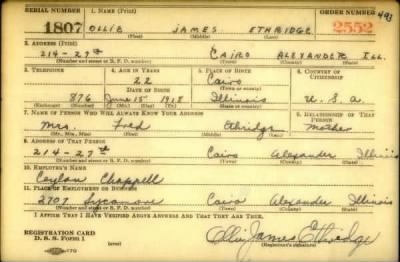 SERIAL NUMBER 1. NAME (Print) ORDER NUMBER
1807 OLLIE JAMES ETHRIDGE 2552 493
(First) (Middle) (Last)
2. ADDRESS (Print)
214-27th CAIRO ALEXANDER ILL.
(Number and street or R. F. D. number) (Town) (County) (State)
3. TELEPHONE 4. AGE IN YEARS 5. PLACE OF BIRTH 6. COUNTRY OF CITIZENSHIP
22 Cairo
DATE OF BIRTH (Town or county)
876 June 15th 1918 Illinois U.S.a.
(Exchange) (Number) (Mo.) (Day) (Yr.) (State or country)
7. NAME OF PERSON WHO WILL ALWAYS KNOW YOUR ADDRESS 8. RELATIONSHIP OF THAT PERSON
Mrs. Fred Ethridge Mother
(Mr., Mrs., Miss) (First) (Middle) (Last)
9. ADDRESS OF THAT PERSON
214-27th Cairo Alexander Illinois
(Number and street or R. F. D. number) (Town) (County) (State)
10. EMPLOYER'S NAME
Ceylon Chappell
11. PLACE OF EMPLOYMENT OR BUSINESS
2707 Sycamore Cairo Alexander Illinois
(Number and street or R. F. D. number) (Town) (County) (State)
I AFFIRM THAT I HAVE VERIFIED ABOVE ANSWERS AND THAT THEY ARE TRUE.
REGISTRATION CARD
D. S. S. Form 1
Ollie James Ethridge
(Registrant's signature)